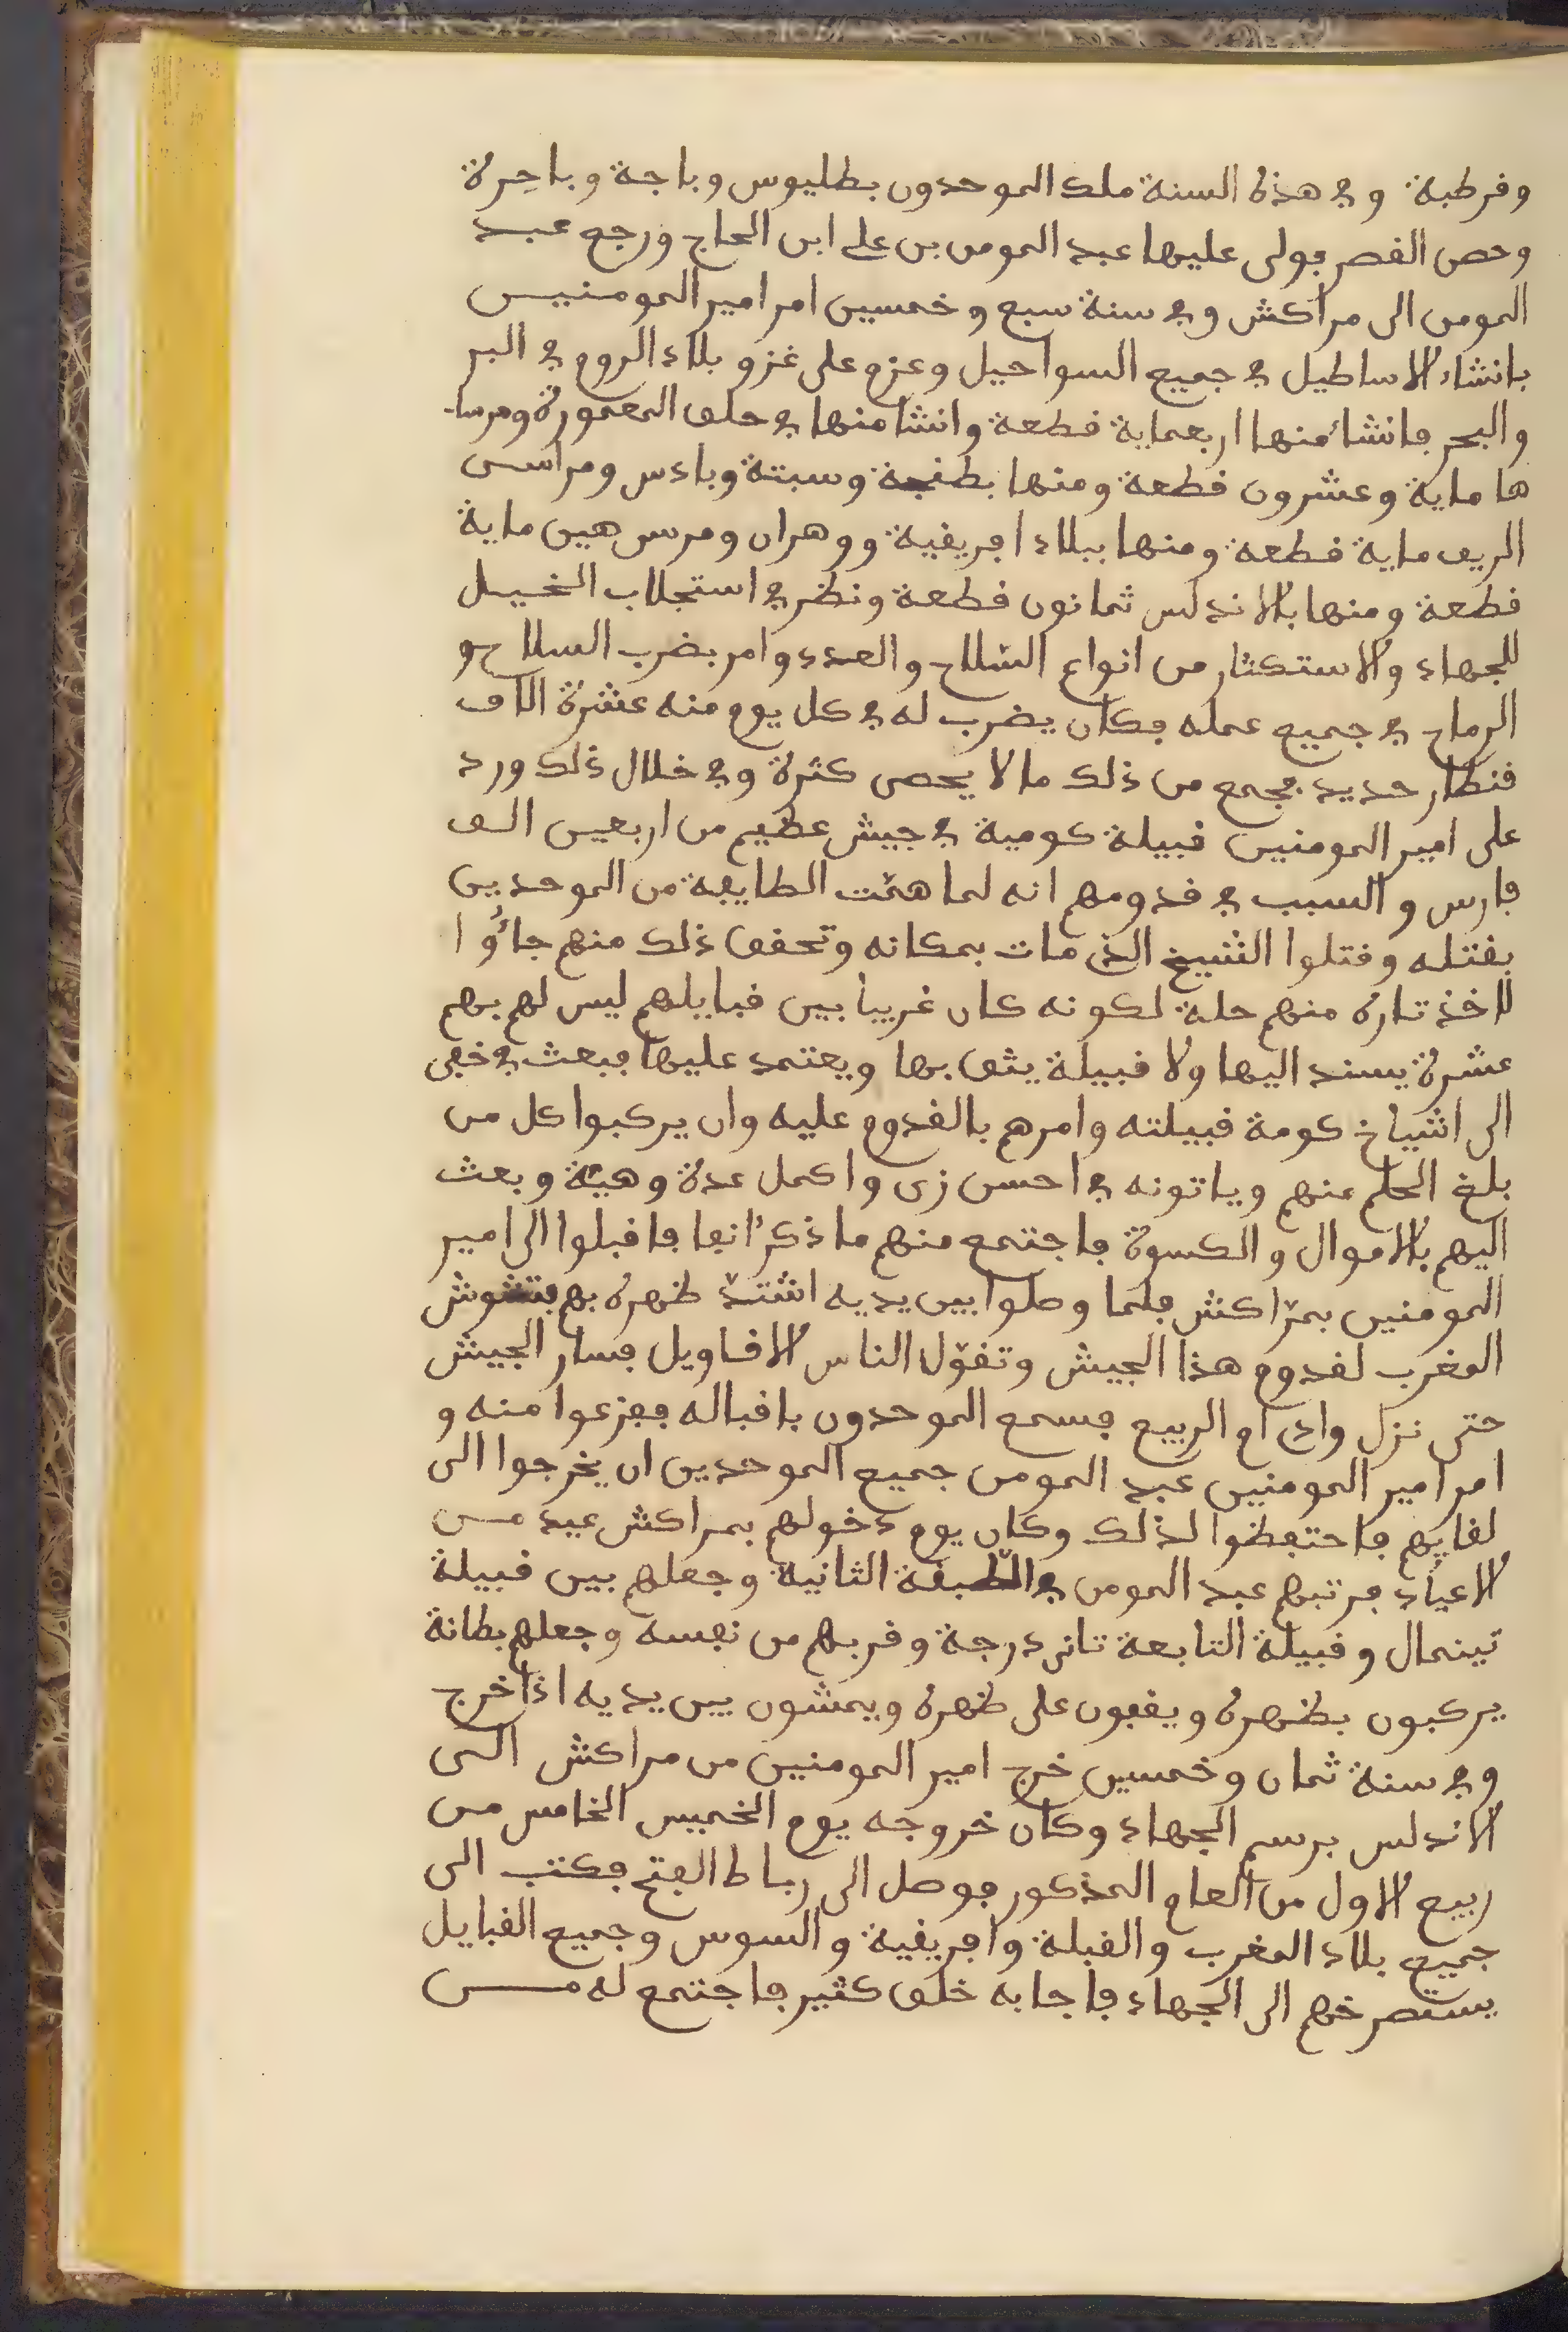 وقرطبة وفي هذه السنة ملك الموحدون بطليوس وباجة وباجرة
وحصن القصر فولى عليها عبد المومن بن علي ابن الحاج ورجع عبد
المومن الى مراكش وفي سنة سبع وخمسين امر امير المومنين
بانشاء الاساطيل في جميع السواحيل وعزم على غزو بلاد الروم في البر
والبحر فانشأ منها اربعماية قطعة وانشا منها في حلق المعمورة ومرسا
ها ماية وعشرون قطعة ومنها بطنجة وسبتة وبادس ومراسى
الريف ماية قطعة ومنها ببلاد افريقية ووهران ومرس هين ماية
قطعة ومنها بالاندلس ثمانون قطعة ونظر في استجلاب الخيل
للجهاد والاستكثار من انواع السلاح والعدد وامر بضرب السلاح و
الرماح في جميع عمله فكان يضرب له في كل يوم منه عشرة الاف
قنطار حديد فجمع من ذلك ما لا يحصى كثرة وفي خلال ذلك ورد
على امير المومنين قبيلة كومية في جيش عظيم من اربعين الف
فارس والسبب في قدومهم انه لما همّت الطايفة من الموحدين
بقتله وقتلوا الشيخ الذي مات بمكانه وتحقق ذلك منهم جاءُوا
لاخذ تاره منهم حلة لكونه كان غريبا بين قبايلهم ليس لهم بهم
عشرة يسند اليها ولا قبيلة يثق بها ويعتمد عليها فبعث في خفى
الى اشياخ كومة قبيلته وامرهم بالقدوم عليه وان يركبوا كل من
بلغ الحلم منهم وياتونه في احسن زى واكمل عدة وهيئة وبعث
اليهم بالاموال والكسوة فاجتمع منهم ما ذكر انفا فاقبلوا الى امير
المومنين بمرّاكش فلما وصلوا بين يديه اشتدّ ظهره بهم فتشوش
المغرب لقدوم هذا الجيش وتقوّل الناس الاقاويل فسار الجيش
حتى نزل وادي ام الربيع فسمع الموحدون باقباله ففزعوا منه و
امر امير المومنين عبد المومن جميع الموحدين ان يخرجوا الى
لقايهم فاحتفظوا لذلك وكان يوم دخولهم بمراكش عيد من
الاعياد فرتبهم عبد المومن في الطبقة الثانية وجعلهم بين قبيلة
تينمال وقبيلة التابعة تانى درجة وقربهم من نفسه وجعلهم بطانة
يركبون بظهره ويقفون على ظهره ويمشون بين يديه اذا خرج
وفي سنة ثمان وخمسين خرج امير المومنين من مراكش الى
الاندلس برسم الجهاد وكان خروجه يوم الخميس الخامس من
ربيع الاول من العام المذكور فوصل الى رباط الفتح فكتب الى
جميع بلاد المغرب والقبلة وافريقية والسوس وجميع القبايل
يستصرخهم الى الجهاد فاجابه خلق كثير فاجتمع له من